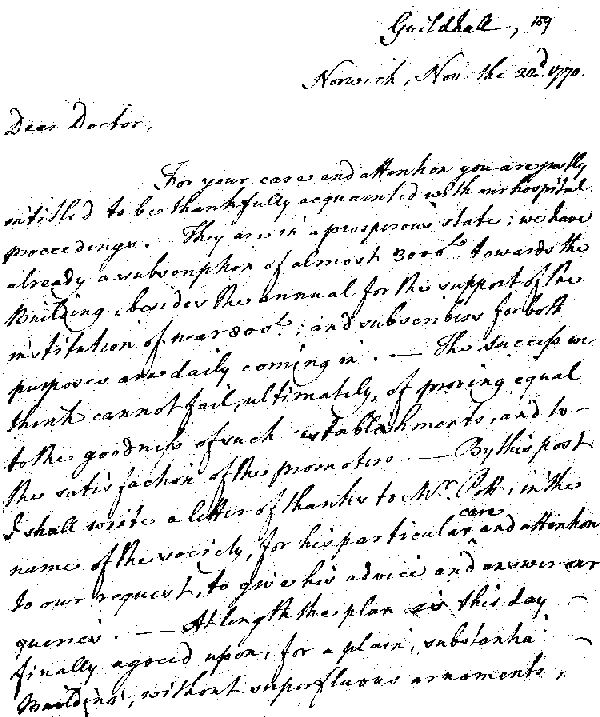 Guildhall, 159
Norwich, Nov the 22d 1770.
Dear Doctor,
For your care and attention you are justly
entitled to be thankfully acquainted with our hospital
proceedings. They are in a prosperous state; we have
already a subscription of almost 3000£ towards the
Building, besides the annual for the support of the
institution of near 800£; and subscribers for both
purposes are daily coming in. — The success we
think cannot fail, ultimately, of proving equal
to the goodness of such establishments, and to —
the satisfaction of the promoters. — By this post
I shall write a letter of thanks to Mr. Pott, in the
name of the society, for his particular care and attention
to our request, to give his advice and answer our
queries. — At length the plan is this day —
finally agreed upon, for a plain, substantial —
Building, without superfluous ornaments,